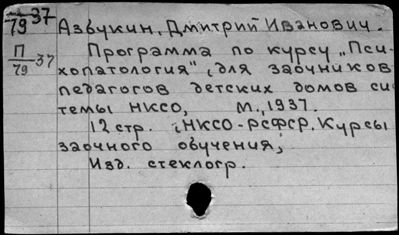 79 37
Азбукин, Дмитрий Иванович.
П
79 37
Программа по курсу „Пси-
хопатология", для заочников
педагогов детских домов си
темы НКСО, М., 1937.
12 стр. (НКСО-РСФСР. Курсы
заочного обучения,
Изд. стеклогр.